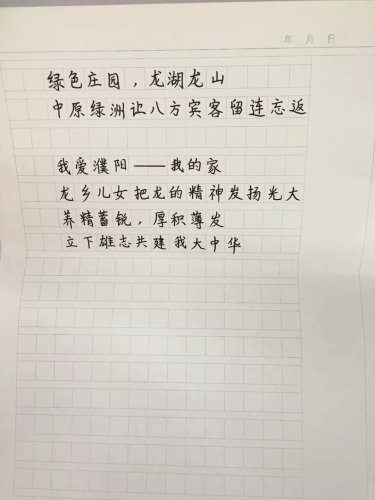 年 月 日
绿色庄园，龙湖龙山
中原绿洲让八方宾客留连忘返
我爱濮阳——我的家
龙乡儿女把龙的精神发扬光大
养精蓄锐，厚积薄发
立下雄志共建我大中华